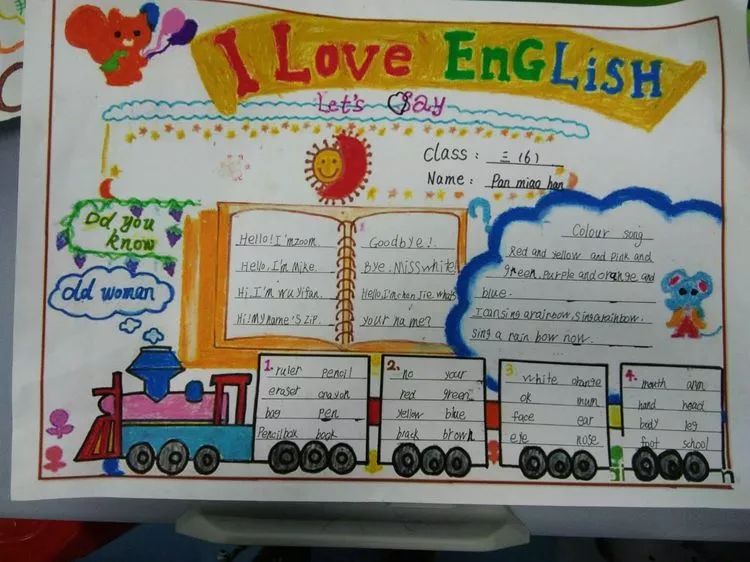 I Love EnGLiSH
Let's Say
Class: 三(6)
Name: Pan miao han
Did you
know
old woman
Hello! I'm zoom.
Hello, I'm Mike.
Hi, I'm wu yifan.
Hi! My name's Zip.
Goodbye!
Bye, Miss white!
Hello, I'm chen Jie. what's
your name?
Colour song
Red and yellow and pink and
green, purple and orange and
blue.
I can sing a rainbow, sing a rainbow.
sing a rain bow now.
1. ruler pencil
eraser crayon
bag pen
Pencilbox book
2. no your
red green
yellow blue
brack brown
3 white orange
ok mum
face ear
eye nose
4. mouth arm
hand head
body leg
foot school